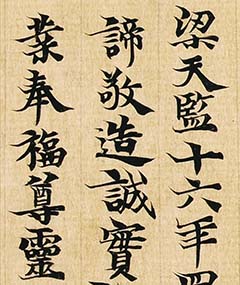 梁天監十六年四
諦敬造誠實
業奉福尊靈